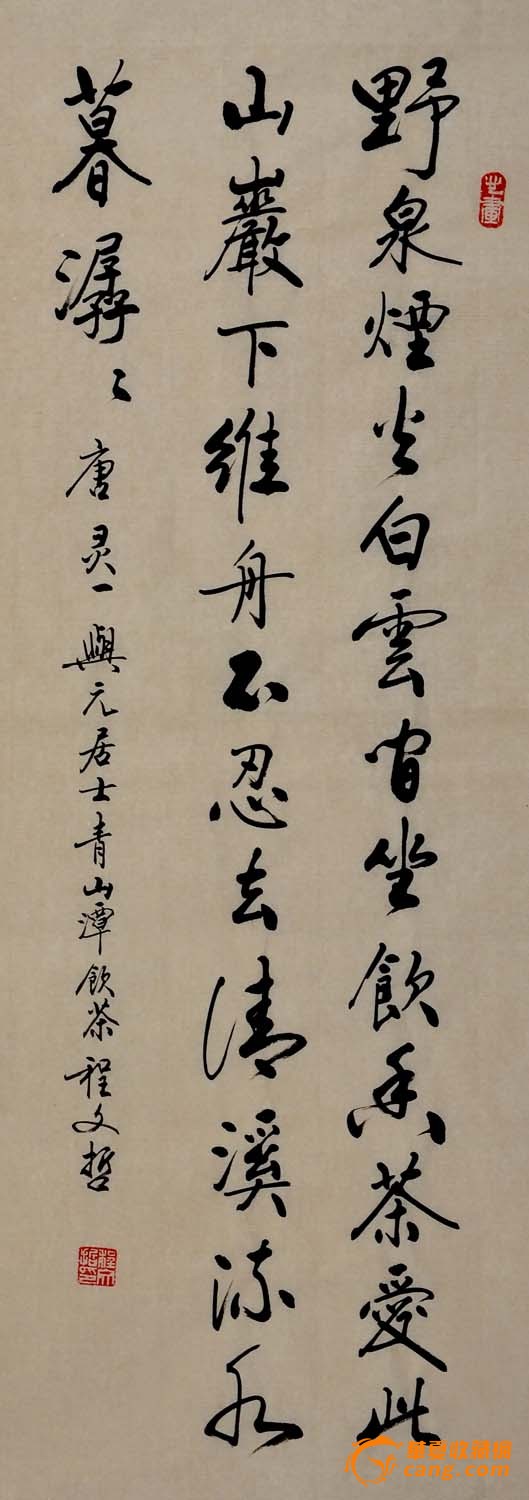 野泉煙火白雲間坐飲香茶愛此
山巖下維舟不忍去清溪流水
暮潺〻唐灵一與元居士青山潭飲茶程文哲
华夏收藏网
cang.com